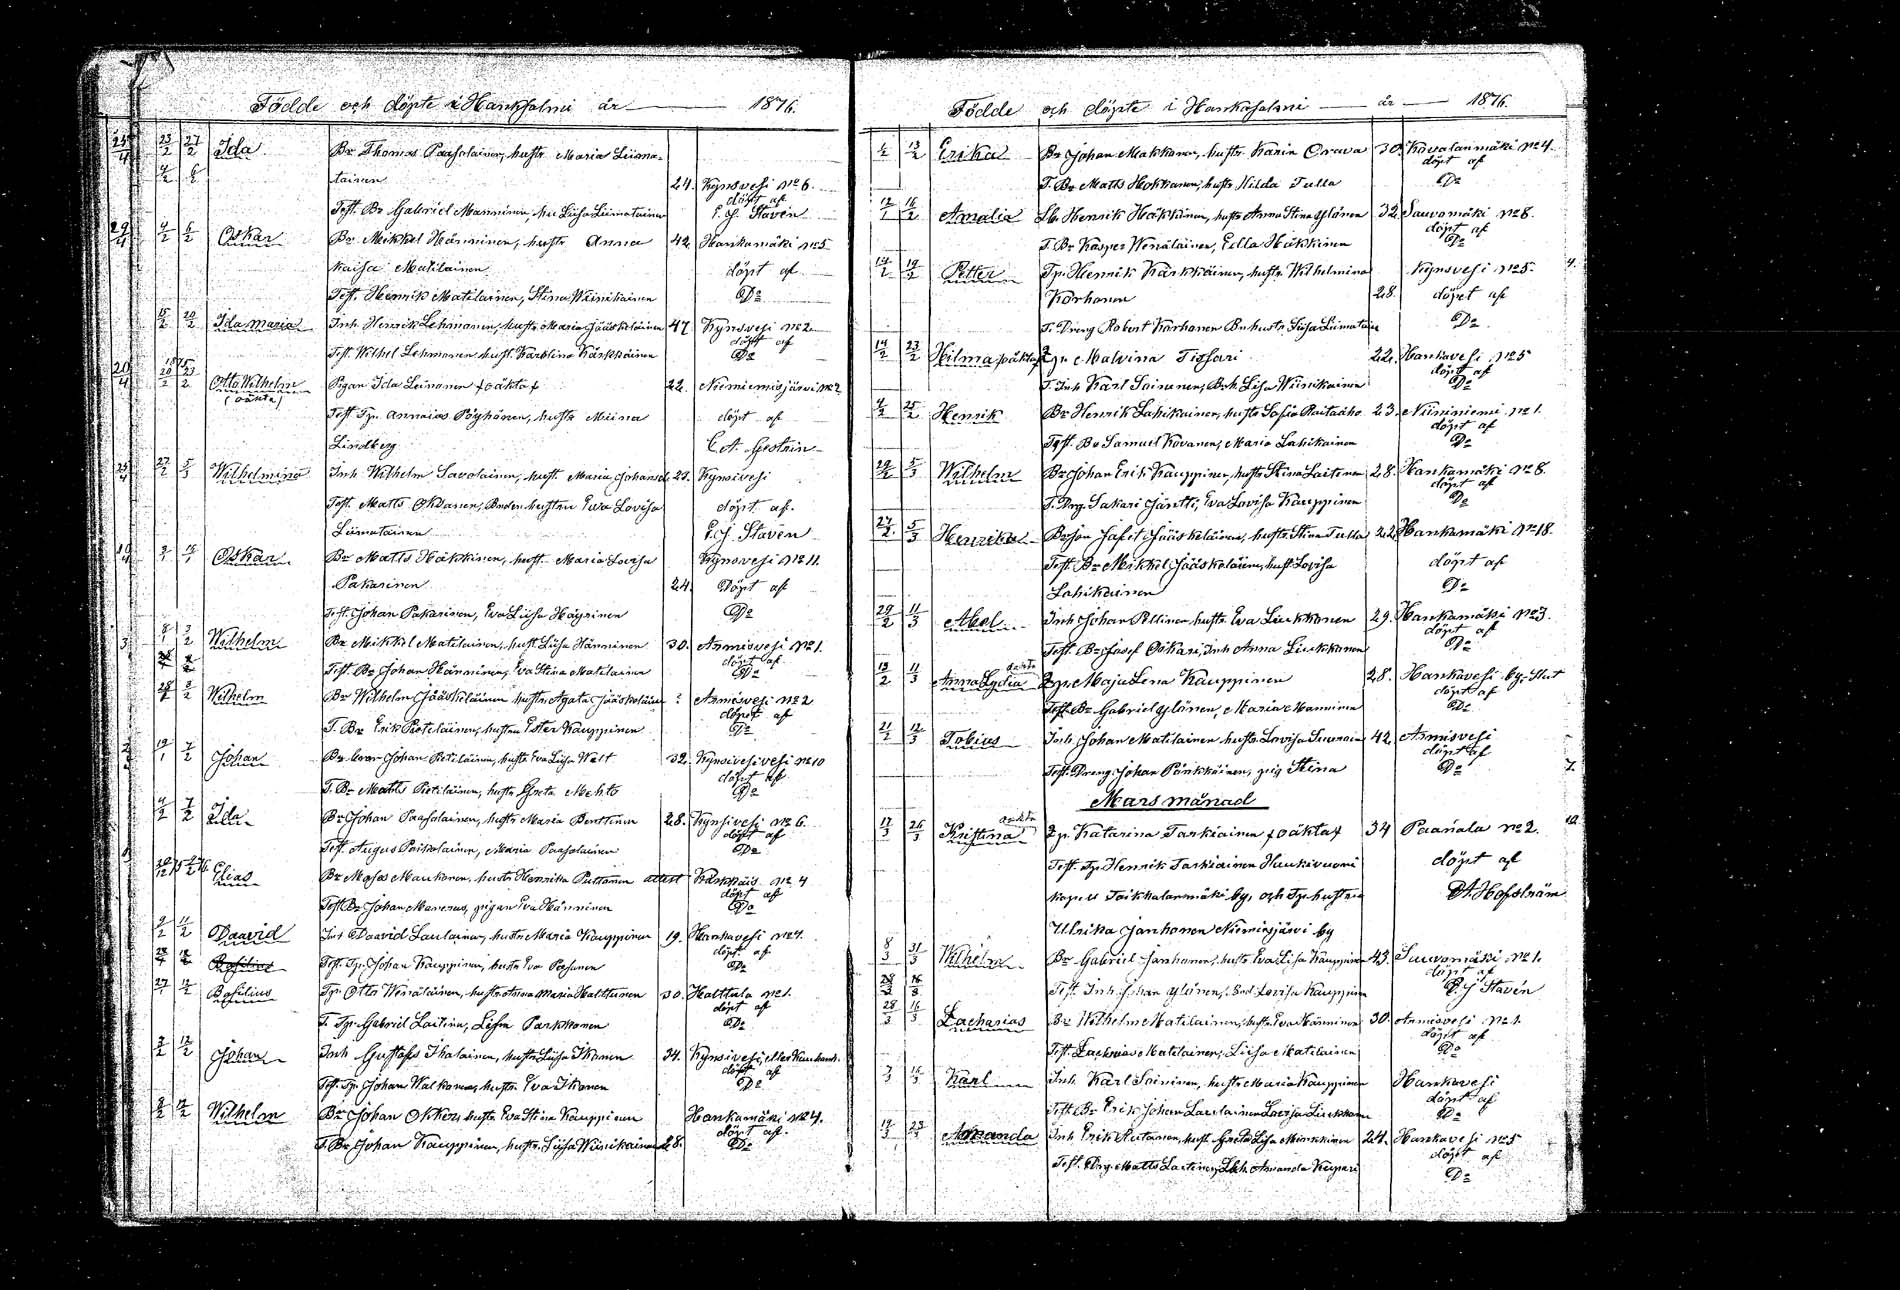 Födde och döpte i Hankasalmi år 1876.
25/4 23/2 27/2 Ida Br Thomas Paasolainen, hustr Maria Liima-
4/2 6/2 tainen 24. Kynsvesi No 6.
döpt af
Test. Br Gabriel Manninen, hu Liisa Liimatainen E. J. Stavén
29/4 4/2 6/2 Oskar Br Mikkel Hänninen, hustr Anna 42. Hankamäki No 5
Kaisa Matilainen döpt af
Test. Henrik Matilainen, Stina Wiinikainen Do
15/2 20/2 Ida Maria Inh. Henrik Lehmonen, hustr Maria Jääskeläinen 47 Kynsvesi No 2
döpt af
Test. Wilhel Lehmonen hust. Karolina Kärkkäinen Do
20/4 23/2 Otto Wilhelm Pigan Ida Leinonen foäktaf 22. Niemiemisjärvi No 2
(oäkta)
Test Tp. Annaias Pöyhönen, hustr Miina döpt af
Lindberg C. A. Gestrin
25/4 27/2 5/3 Wilhelmina Inh. Wilhelm Savolainen, hust. Maria Johansd. 23. Kynsivesi
Test. Matts Oksanen, Bonden hustrun Eva Lovisa döpt af.
Liimatainen E. J. Stavén
Oskar Br Matts Häkkinen, hust. Maria Lovisa Kynsvesi No 11.
Pakarinen 24. döpt af
Test. Johan Pakarinen, Eva Liisa Häyrinen Do
3. 8/1 3/2 Wilhelm Br Mikkel Matilainen, hust. Liisa Hänninen 30. Armisvesi No 1.
döpt af
Test. Br Johan Hänninen, Eva Stina Matilainen Do
3/2 Wilhelm Br Wilhelm Jääskeläinen hustr Agata Jääskeläinen ? Armisvesi No 2
döpt af
T. Br Erik Pietiläinen, hustru Ester Kauppinen Do
19/1 7/2 Johan Br bror Johan Pietiläinen, hustr Eva Liisa Welt 32. Kynsivesivesi No 10
döpt af
T. Br Matts Pietiläinen, hustr Greta Mehto Do
4/2 7/2 Ida Br Johan Paasolainen, hustr Maria Penttinen 28. Kynsivesi No 6.
döpt af
Test. August Poikolainen, Maria Paasolainen Do
Elias Br Moses Maukonen, hustr Henrika Puttonen attest Kärkkäis No 4
döpt af
Test Br Johan Manerus, pigan Eva Hänninen Do
9/2 11/2 Daavid Inh Daavid Laulainen, hustr Maria Kauppinen 19. Hankavesi No 4.
döpt af
Basilius Test. Tp. Johan Kauppinen, hustr Eva Pessonen Do
27/1 12/2 Basilius Tp. Otto Wenäläinen, hustr Anna Maria Halttunen 30. Halttula No 1.
döpt af
T. Tp. Gabriel Laitinen, Lisa Parkkonen Do
3/2 12/2 Johan Inh Gustafs Ikalainen, hustr Liisa Ikonen 34. Kynsivesi, eller Kauhank.
döpt af
Test. Tp. Johan Walkonen, hustr Eva Ikonen Do
8/2 12/2 Wilhelm Br Johan Okkonen hustr Eva Stina Kauppinen Hankamäki No 4.
döpt af
T. Br Johan Kauppinen, hustr Liisa Wiinikainen 28. Do
Födde och döpte i Hankasalmi år 1876.
6/2 13/2 Erika Br Johan Makkonen, hustr Karin Orava 30. Kovalanmäki No 4.
döpt af
T. Br Matts Hokkanen, hustr Hilda Tulla Do
16/2 Amalia Lb. Henrik Häkkinen, hustr Anna Stina Ylönen 32. Sauvomäki No 8.
döpt af
T. Br Kasper Wenäläinen, Eella Häkkinen Do
14/2 19/2 Petter Tp. Henrik Kärkkäinen, hustr Wilhelmina Kynsvesi No 5. 4.
Korhonen 28. döpt af
T. Dreng Robert Korhonen Bnhustr Liisa Liimatain Do
14/2 23/2 Hilma foäktaf Tp. Malvina Tissari 22. Hankavesi No 5
döpt af
T. Inh Karl Soininen, Brh Lisa Wiinikainen Do
4/2 25/2 Henrik Br Henrik Lahikainen, hustr Sofia Raitaaho 23. Niininiemi No 1.
döpt af
Test. Br Samuel Kovanen, Maria Lahikainen Do
5/3 Wilhelm Br Johan Erik Kauppinen, hustr Stina Laitinen 28. Hankamäki No 8.
döpt af
T. Drg. Sakari Jäntti, Eva Lovisa Kauppinen Do
5/3 Henrika Brson Jafet Jääskeläinen, hustr Stina Tulla 22 Hankamäki No 18.
Test. Br Mikkel Jääskeläinen, hust. Lovisa döpt af
Lahikainen Do
29/2 11/3 Abel Inh Johan Pellinen, hustr Eva Liukkonen 29. Hankamäki No 3.
döpt af
Test. Br Josef Oskari, Inh Anna Liukkonen Do
13/2 11/3 Anna Lydia oäkta Tp. Maja Lena Kauppinen 28. Hankavesi by.
döpt af
Test. Br Gabriel Ylönen, Maria Manninen Do
21/2 12/3 Tobius Inh. Johan Matilainen hustr Lovisa Suuronen 42. Armisvesi
döpt af
Test. Dreng Johan Pärkkäinen, pig Stina Do 7.
Mars månad
17/3 26/3 Kristina oäkta Tp. Katarina Tarkiainen foäktaf 34 Paanala No 2. 10
Test. Tp. Henrik Tarkiainen Haukivuori döpt af
kapell Toikkalanmäki by, och Tp. hustrun A. Hofström
Ulrika Janhonen Niemisjärvi by
8/3 31/3 Wilhelm Br Gabriel Janhonen, hustr Eva Lisa Kauppinen 43. Sauvomäki No 1.
döpt af
Test. Inh Johan Ylönen, Lovisa Kauppinen E. J. Stavén
28/3 16/3 Zacharias Br Wilhelm Matilainen, hustr Eva Hänninen 30. Armisvesi No 1.
döpt af
Test. Zacharias Matilainen, Liisa Matilainen Do
7/3 16/3 Karl Inh. Karl Soininen, hustr Maria Kauppinen Hankavesi
döpt af
Test. Br Erik Johan Laulainen Lovisa Liukkonen Do
Amanda Inh Erik Rutanen, hust. Greta Lisa Minkkinen 24. Hankavesi No 5
döpt af
Test. Drg. Matts Laitinen, Amanda Kupari Do